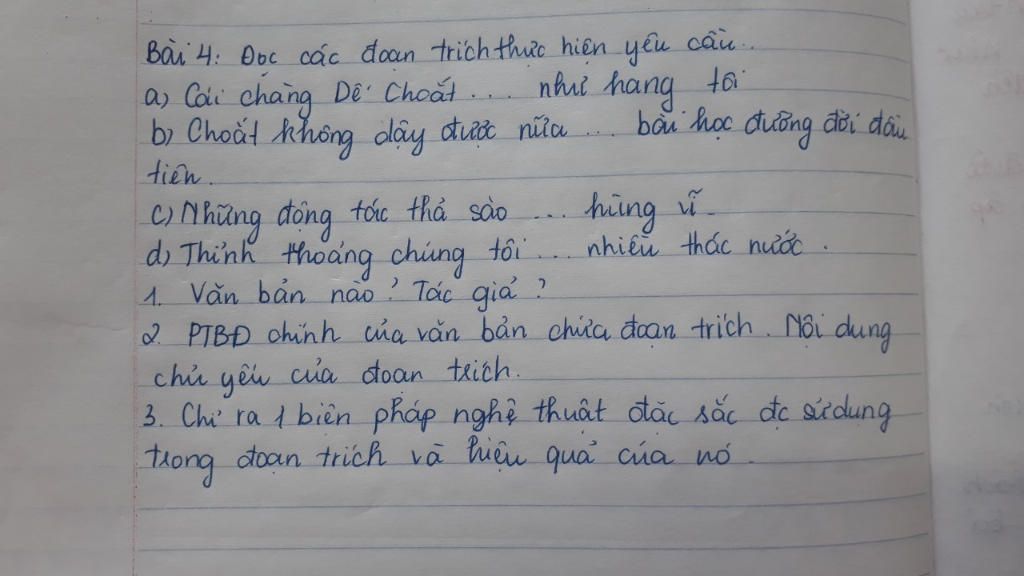 Bài 4: Đọc các đoạn trích thực hiện yêu cầu..
a) Cái chàng Dế Choắt ... như hang tôi
b) Choắt không dậy được nữa ... bài học đường đời đầu
tiên.
c) Những động tác thả sào ... hùng vĩ.
d) Thỉnh thoảng chúng tôi ... nhiều thác nước.
1. Văn bản nào? Tác giả?
2. PTBĐ chính của văn bản chứa đoạn trích. Nội dung
chủ yếu của đoạn trích.
3. Chỉ ra 1 biện pháp nghệ thuật đặc sắc đc sử dụng
trong đoạn trích và hiệu quả của nó.